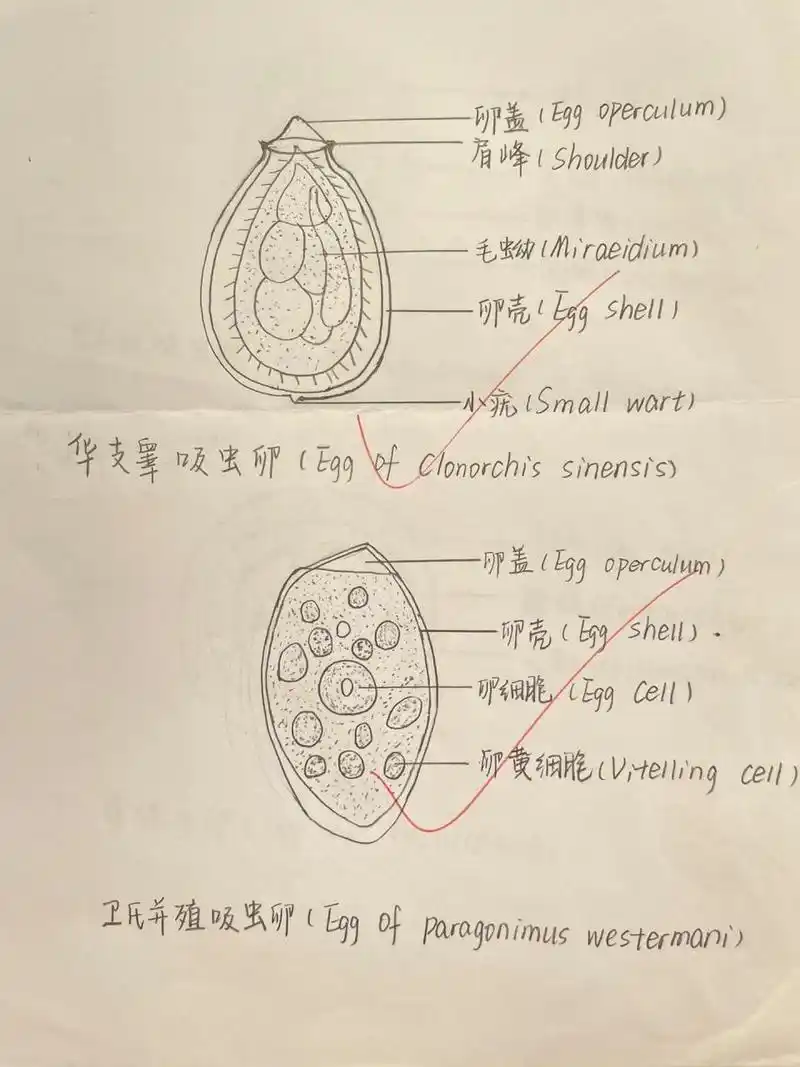 卵盖(Egg operculum)
肩峰(Shoulder)
毛蚴(Miraeidium)
卵壳(Egg shell)
小疣(Small wart)
华支睾吸虫卵(Egg of Clonorchis sinensis)
卵盖(Egg operculum)
卵壳(Egg shell).
卵细胞(Egg cell)
卵黄细胞(Vitelling cell)
卫氏并殖吸虫卵(Egg of paragonimus westermani)